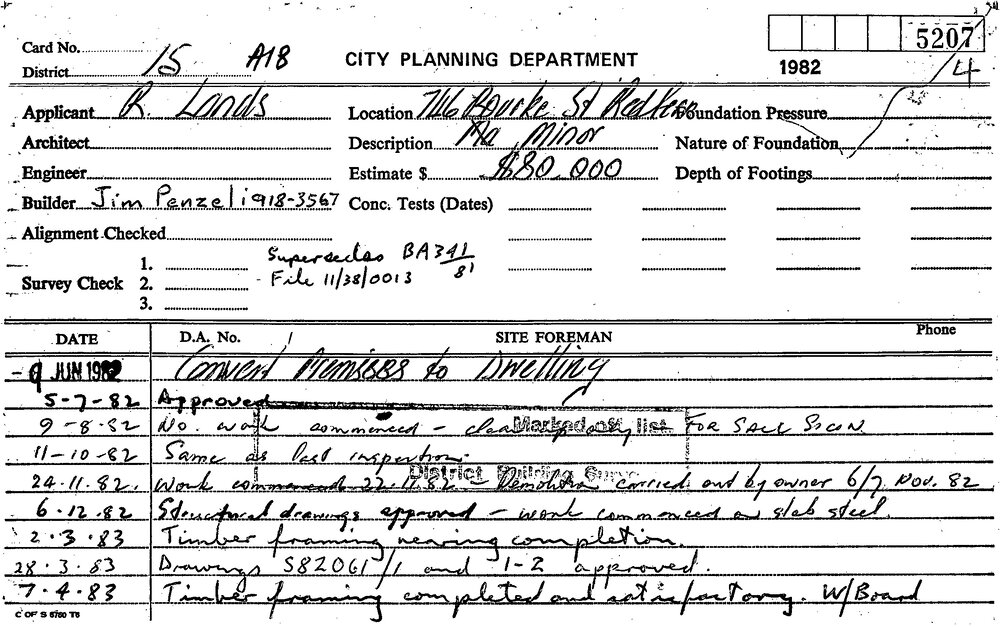 Card No. 5207
District 15 A18 CITY PLANNING DEPARTMENT 1982 /4
Applicant R. Lands Location 716 Bourke St Redfern Foundation Pressure
Architect Description Ma Minor Nature of Foundation
Engineer Estimate $ $80,000 Depth of Footings
Builder Jim Penzeli 918-3567 Conc. Tests (Dates)
Alignment Checked
Supersedes BA 341/81
Survey Check 1.
2. File 11/38/0013
3.
DATE D.A. No. SITE FOREMAN Phone
- 9 JUN 1982 Convert Premises to Dwelling
5-7-82 Approved
9-8-82 No. work commenced - Marked off list FOR SALE SIGN.
11-10-82 Same as last inspection.
District Building Surv
24.11.82. Work commenced 22.11.82 - Demolition carried out by owner 6/7 Nov. 82
6.12.82 Structural drawings approved - work commenced on slab steel.
2.3.83 Timber framing nearing completion.
28.3.83 Drawings S82061/1 and 1-2 approved.
7.4.83 Timber framing completed and satisfactory. W/Board
C OF S 5760 TS